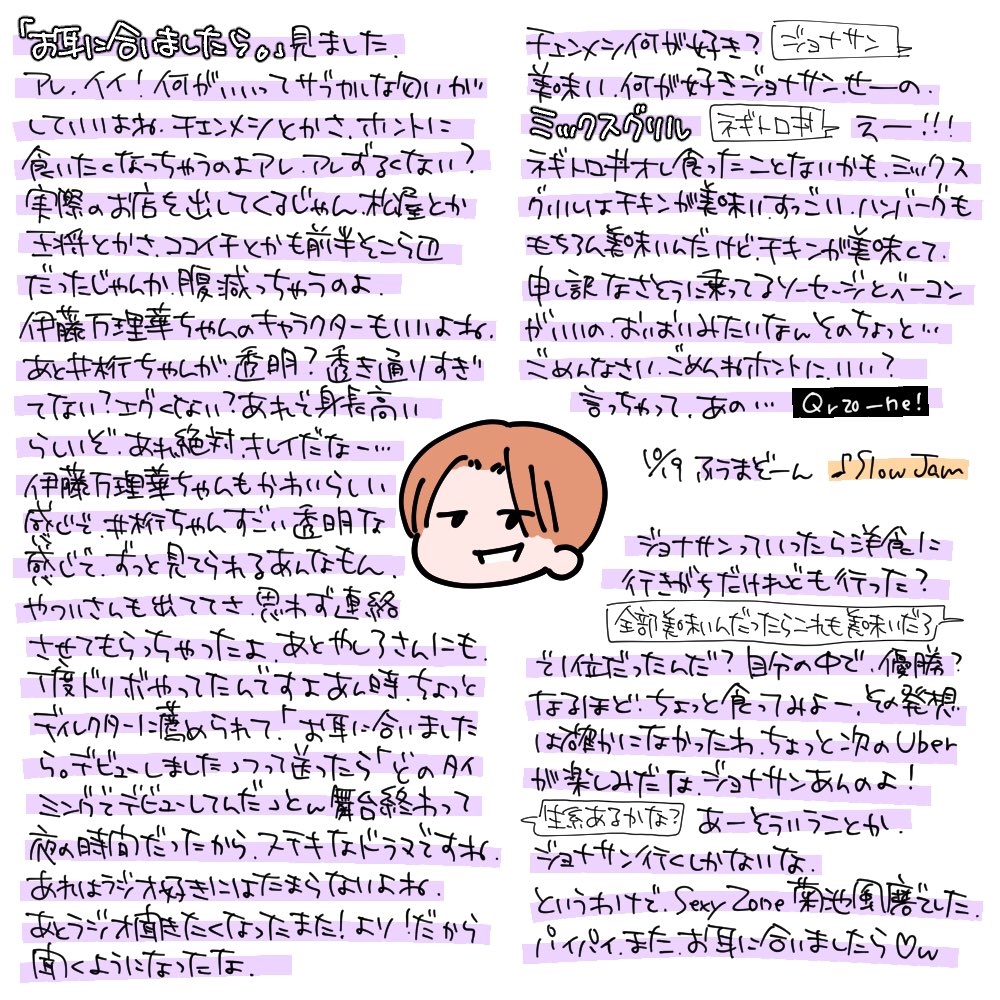 「お耳に合いましたら。」見ました。
アレ、イイ！何がいいってサブカルな匂いが
していいよね。チェンメシとかさ、ホントに
食いたくなっちゃうのよアレ、アレずるくない？
実際のお店を出してくるじゃん、松屋とか
王将とかさ、ココイチとかも前半そこら辺
だったじゃんか、腹減っちゃうのよ。
伊藤万理華ちゃんのキャラクターもいいよね。
あと井桁ちゃんが、透明？透き通りすぎ
てない？エグくない？あれで身長高い
らしいぞ、あれ絶対、キレイだなー…
伊藤万理華ちゃんもかわいらしい
感じで、井桁ちゃんすごい透明な
感じで、ずっと見てられるあんなもん。
やついさんも出ててさ、思わず連絡
させてもらっちゃったよ、あとやしろさんにも。
丁度ドリボやってたんですよあん時、ちょっと
ディレクターに薦められて、「お耳に合いました
ら。デビューしました」つって送ったら「どのタイ
ミングでデビューしてんだ」とん舞台終わって
夜の時間だったから、ステキなドラマですね。
あれはラジオ好きにはたまらないよね。
あとラジオ聞きたくなったまた！より！だから
聞くようになったな。
チェンメシ何が好き？
ジョナサン
美味い、何が好きジョナサン、せーの。
ミックスグリル
ネギトロ丼
えー！！！
ネギトロ丼オレ食ったことないかも、ミックス
グリルはチキンが美味い、すっごい、ハンバーグも
もちろん美味いんだけど、チキンが美味くて、
申し訳なさそうに乗ってるソーセージとベーコン
がいいの、おいおいみたいなんそのちょっと…
ごめんなさい、ごめんねホントに、いい？
言っちゃって、あの…
Qrzo-ne!
10/19 ふうまどーん
♪Slow Jam
ジョナサンっていったら洋食に
行きがちだけれども行った？
全部美味いんだったらこれも美味いだろ
で1位だったんだ？自分の中で、優勝？
なるほど！ちょっと食ってみよー、その発想
は確かになかったわ、ちょっと次のUber
が楽しみだな、ジョナサンあんのよ！
生系あるかな？
あーそういうことか。
ジョナサン行くしかないな。
というわけで、Sexy Zone 菊池風磨でした。
バイバイ、また、お耳に合いましたら♡w